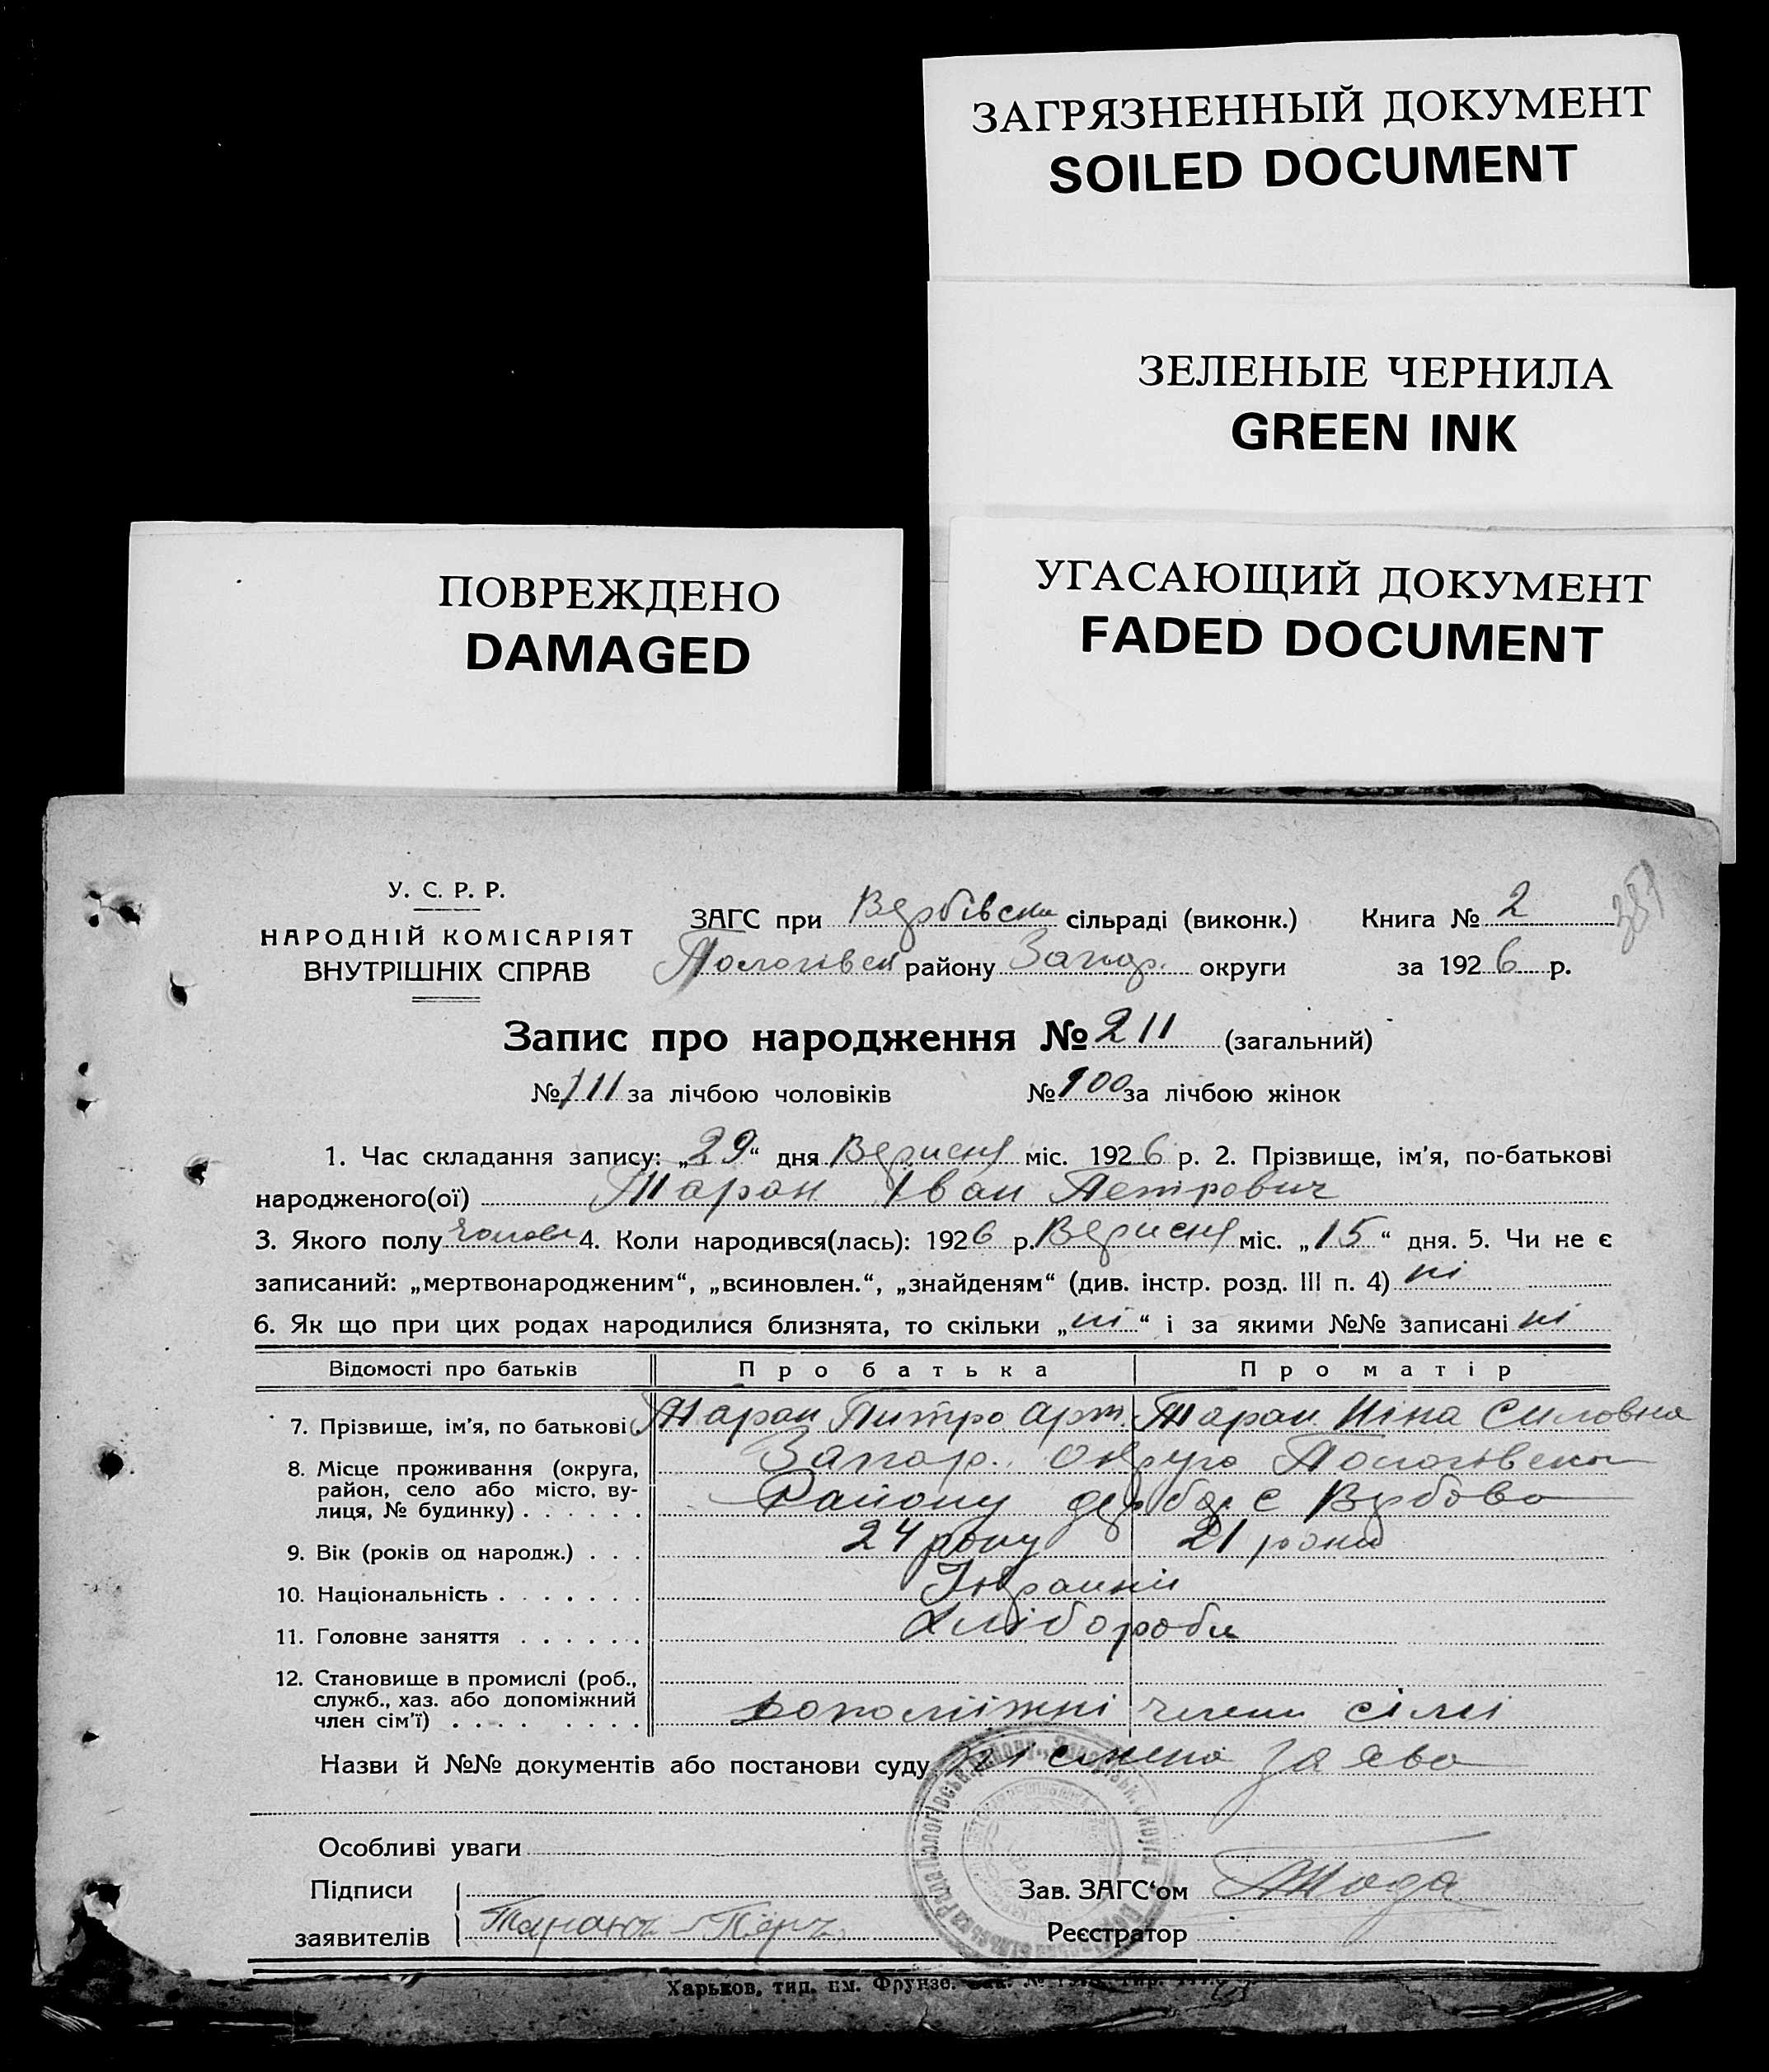 ЗАГРЯЗНЕННЫЙ ДОКУМЕНТ
SOILED DOCUMENT
ЗЕЛЕНЫЕ ЧЕРНИЛА
GREEN INK
ПОВРЕЖДЕНО
DAMAGED
УГАСАЮЩИЙ ДОКУМЕНТ
FADED DOCUMENT
У. С. Р. Р.
НАРОДНІЙ КОМІСАРІЯТ
ВНУТРІШНІХ СПРАВ
ЗАГС при Вербівськ сільраді (виконк.) Книга № 2
Пологівськ району Запор. округи за 1926 р.
Запис про народження № 211 (загальний)
№ 111 за лічбою чоловіків № 100 за лічбою жінок
1. Час складання запису: „29“ дня Вересня міс. 1926 р. 2. Прізвище, ім’я, по-батькові
народженого(ої) Таран Іван Петрович
3. Якого полу чолов 4. Коли народився(лась): 1926 р. Вересня міс. „15“ дня. 5. Чи не є
записаний: „мертвонародженим“, „всиновлен.“, „знайденям“ (див. інстр. розд. III п. 4) ні
6. Як що при цих родах народилися близнята, то скільки „ні“ і за якими №№ записані ні
Відомості про батьків Про батька Про матір
7. Прізвище, ім’я, по батькові Таран Питро Арт. Таран Ніна Силовна
8. Місце проживання (округа, район, село або місто, вулиця, № будинку) Запор. округа Пологівськ
Району с Вербова
9. Вік (років од народж.) 24 року 21 рока
10. Національність Украинці
11. Головне заняття Хлібороби
12. Становище в промислі (роб., служб., хаз. або допоміжний член сім’ї) допоміжні члени сімі
Назви й №№ документів або постанови суду заява
Особливі уваги
Підписи Зав. ЗАГС‘ом
заявителів Таранъ Петр. Реєстратор
Харьков, тип. им. Фрунзе.